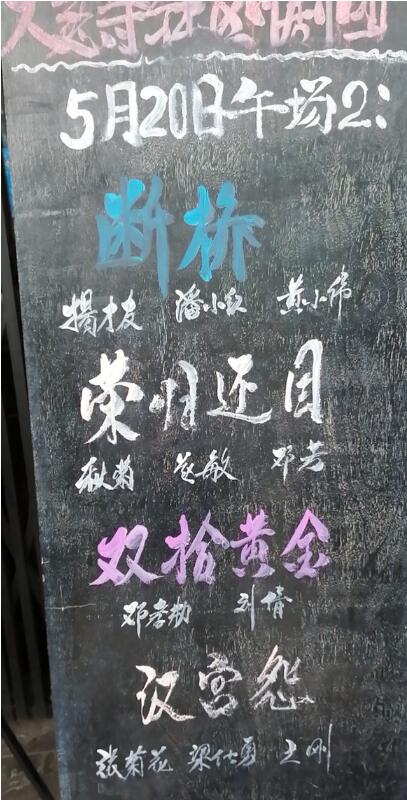 5月20日午场2:
断桥
杨友 潘小红 黄小伟
荣归还目
秋菊 敏 邓芳
双拾黄金
邓孝勤 刘倩
汉宫怨
张菊花 梁仕勇 士刚